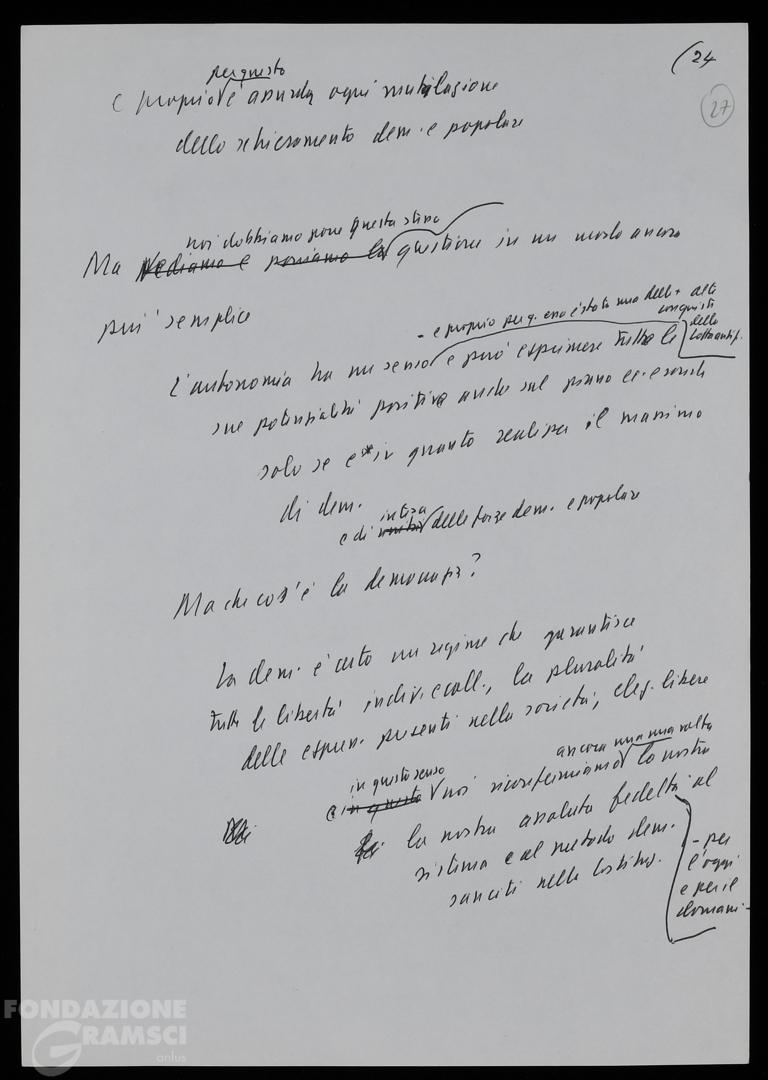 (24
27
per questo
E proprio è assurda ogni mutilazione
dello schieramento dem. e popolare
noi dobbiamo porre questa stessa
Ma vediamo e poniamo la questione in un modo ancora
più semplice
- e proprio per q. essa è stata una delle + alte
conquiste
della
lotta antif.
L'autonomia ha un senso e può esprimere tutte le
sue potenzialità positive anche sul piano ec. e sociale
solo se e in quanto realizza il massimo
di dem.
intesa
e di delle forze dem. e popolare
Ma che cos'è la democrazia?
La dem. è certo un regime che garantisce
tutte le libertà indiv. e coll., la pluralità
delle espress. presenti nella società, elez. libere
ancora una una volta
in questo senso
e in questo noi riconfermiamo la nostra
la nostra assoluta fedeltà al
sistema e al metodo dem.
sanciti nella Costituz.
- per
l'oggi
e per il
domani -
FONDAZIONE
GRAMSCI
onlus